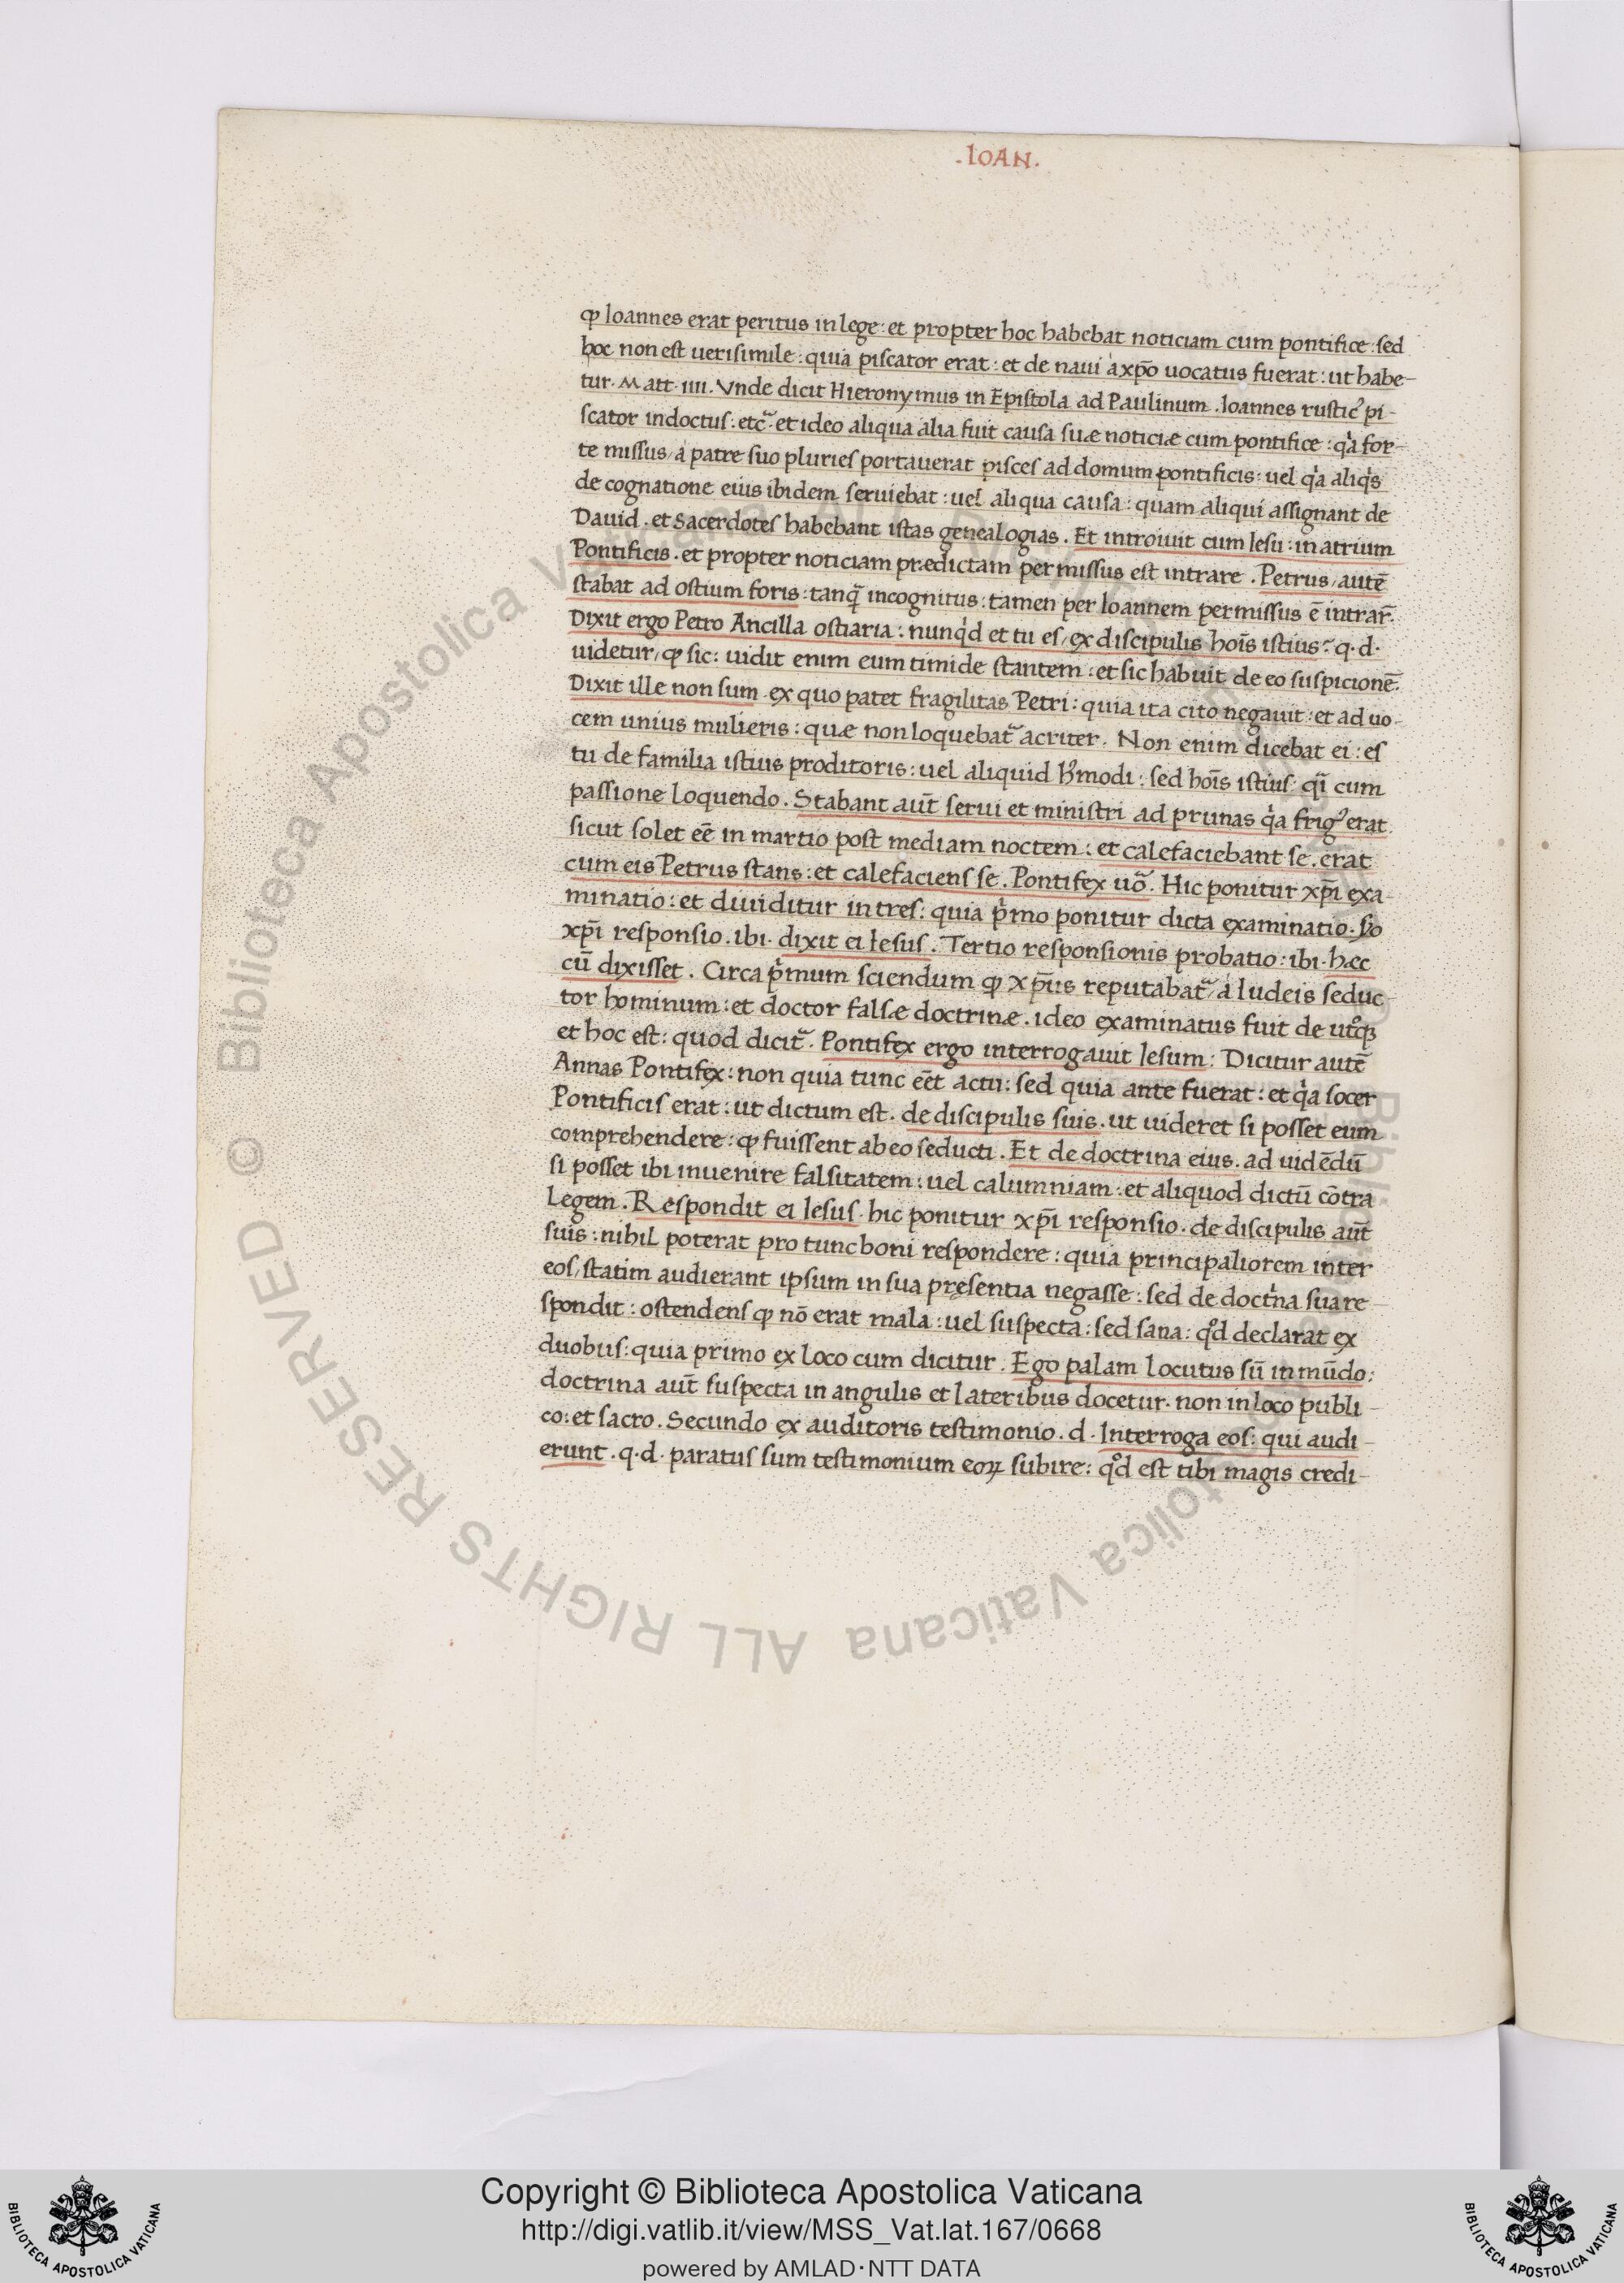 .IOAN.
ꝙ Ioannes erat peritus in lege: et propter hoc habebat noticiam cum pontifice: sed
hoc non est uerisimile: quia piscator erat: et de naui à xp̄o uocatus fuerat: ut habe-
tur. Matt. IIII. Vnde dicit Hieronymus in Ep̄istola ad Paulinum. Ioannes rusticꝰ pi-
scator indoctus: etc̃. et ideo aliqua alia fuit causa suæ noticiæ cum pontifice: qͥa for-
te missus, a patre suo pluries portauerat pisces ad domum pontificis: uel qͥa aliqͥs
de cognatione eius ibidem seruiebat: uel aliqua causa: quam aliqui assignant de
Dauid. et Sacerdotes habebant istas genealogias. Et introiuit cum Iesu: in atrium
Pontificis. et propter noticiam prædictam permissus est intrare. Petrus, autē
stabat ad ostium foris: tanq̃ incognitus: tamen per Ioannem permissus ē intrar̄.
Dixit ergo Petro Ancilla ostiaria: nunqͥd et tu es, ex discipulis hoīs istius? q.d.
uidetur, ꝙ sic: uidit enim eum timide stantem: et sic habuit de eo suspicionē.
Dixit ille non sum. ex quo patet fragilitas Petri: quia ita cito negauit: et ad uo-
cem unius mulieris: quæ non loquebat̃ acriter. Non enim dicebat ei: es
tu de familia istius proditoris: uel aliquid hꝰmodi: sed hoīs istius: q̄i cum
passione loquendo. Stabant aūt serui et ministri ad prunas qͥa frigꝰ erat.
sicut solet eē in martio post mediam noctem: et calefaciebant se. erat
cum eis Petrus stans: et calefaciens se. Pontifex uō. Hic ponitur xp̄i exa-
minatio: et diuiditur in tres: quia pͥmo ponitur dicta examinatio. 2o
xp̄i responsio. ibi. dixit ei Iesus. Tertio responsionis probatio: ibi. hæc
cū dixisset. Circa pͥmum sciendum ꝙ xp̄us reputabat̃, à Iudeis seduc-
tor hominum: et doctor falsæ doctrinæ. ideo examinatus fuit de utͦqꝫ
et hoc est: quod dicit̃. Pontifex ergo interrogauit Iesum: Dicitur autē
Annas Pontifex: non quia tunc eēt actu: sed quia ante fuerat: et qͥa socer
Pontificis erat: ut dictum est. de discipulis suis. ut uideret si posset eum
comprehendere: ꝙ fuissent ab eo seducti. Et de doctrina eius. ad uidēdū
si posset ibi inuenire falsitatem: uel calumniam: et aliquod dictū cōtra
Legem. Respondit ei Iesus. hic ponitur xp̄i responsio. de discipulis aūt
suis: nihil poterat pro tunc boni respondere: quia principaliorem inter
eos, statim audierant ipsum in sua pręsentia negasse: sed de doctͥna sua re-
spondit: ostendens ꝙ nō erat mala: uel suspecta: sed sana: qͦd declarat ex
duobus: quia primo ex loco cum dicitur. Ego palam locutus sū in mūdo:
doctrina aūt suspecta in angulis et lateribus docetur. non in loco publi-
co: et sacro. Secundo ex auditoris testimonio. d. Interroga eos: qui audi-
erunt. q.d. paratus sum testimonium eoꝝ subire: qͦd est tibi magis credi-
© Biblioteca Apostolica Vaticana ALL RIGHTS RESERVED
Copyright © Biblioteca Apostolica Vaticana
http://digi.vatlib.it/view/MSS_Vat.lat.167/0668
powered by AMLAD·NTT DATA
BIBLIOTECA APOSTOLICA VATICANA
BIBLIOTECA APOSTOLICA VATICANA